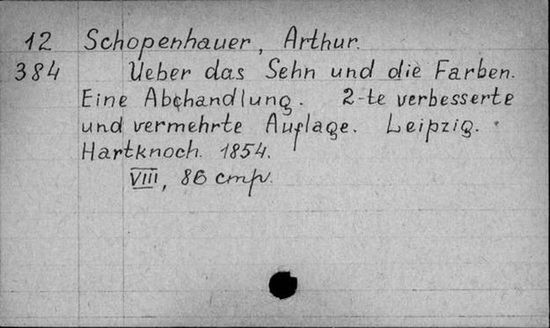 12 Schopenhauer, Arthur.
384 Ueber das Sehn und die Farben.
Eine Abhandlung. 2-te verbesserte
und vermehrte Auflage. Leipzig.
Hartknoch. 1854.
VIII, 86 стр.